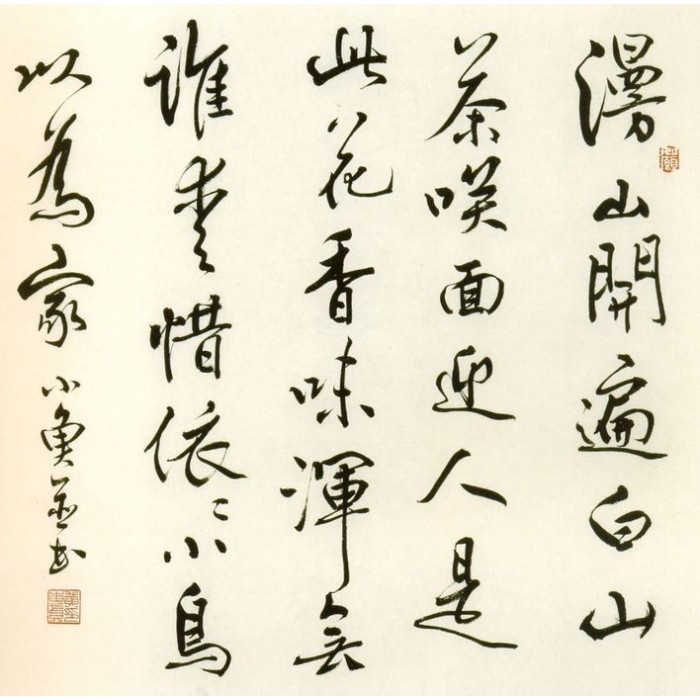 漫山開遍白山
茶咲面迎人是
此花香味渾無
誰愛惜依〻小鳥
以為家 小魚並書